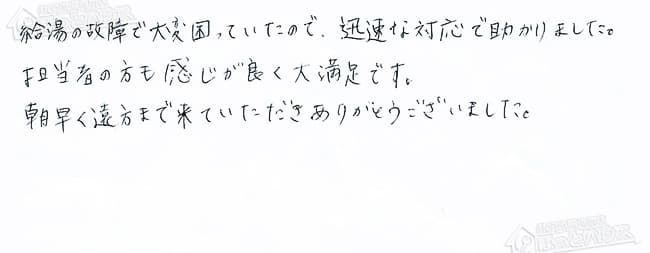 給湯の故障で大変困っていたので、迅速な対応で助かりました。
担当者の方も感じが良く大満足です。
朝早く遠方まで来ていただきありがとうございました。